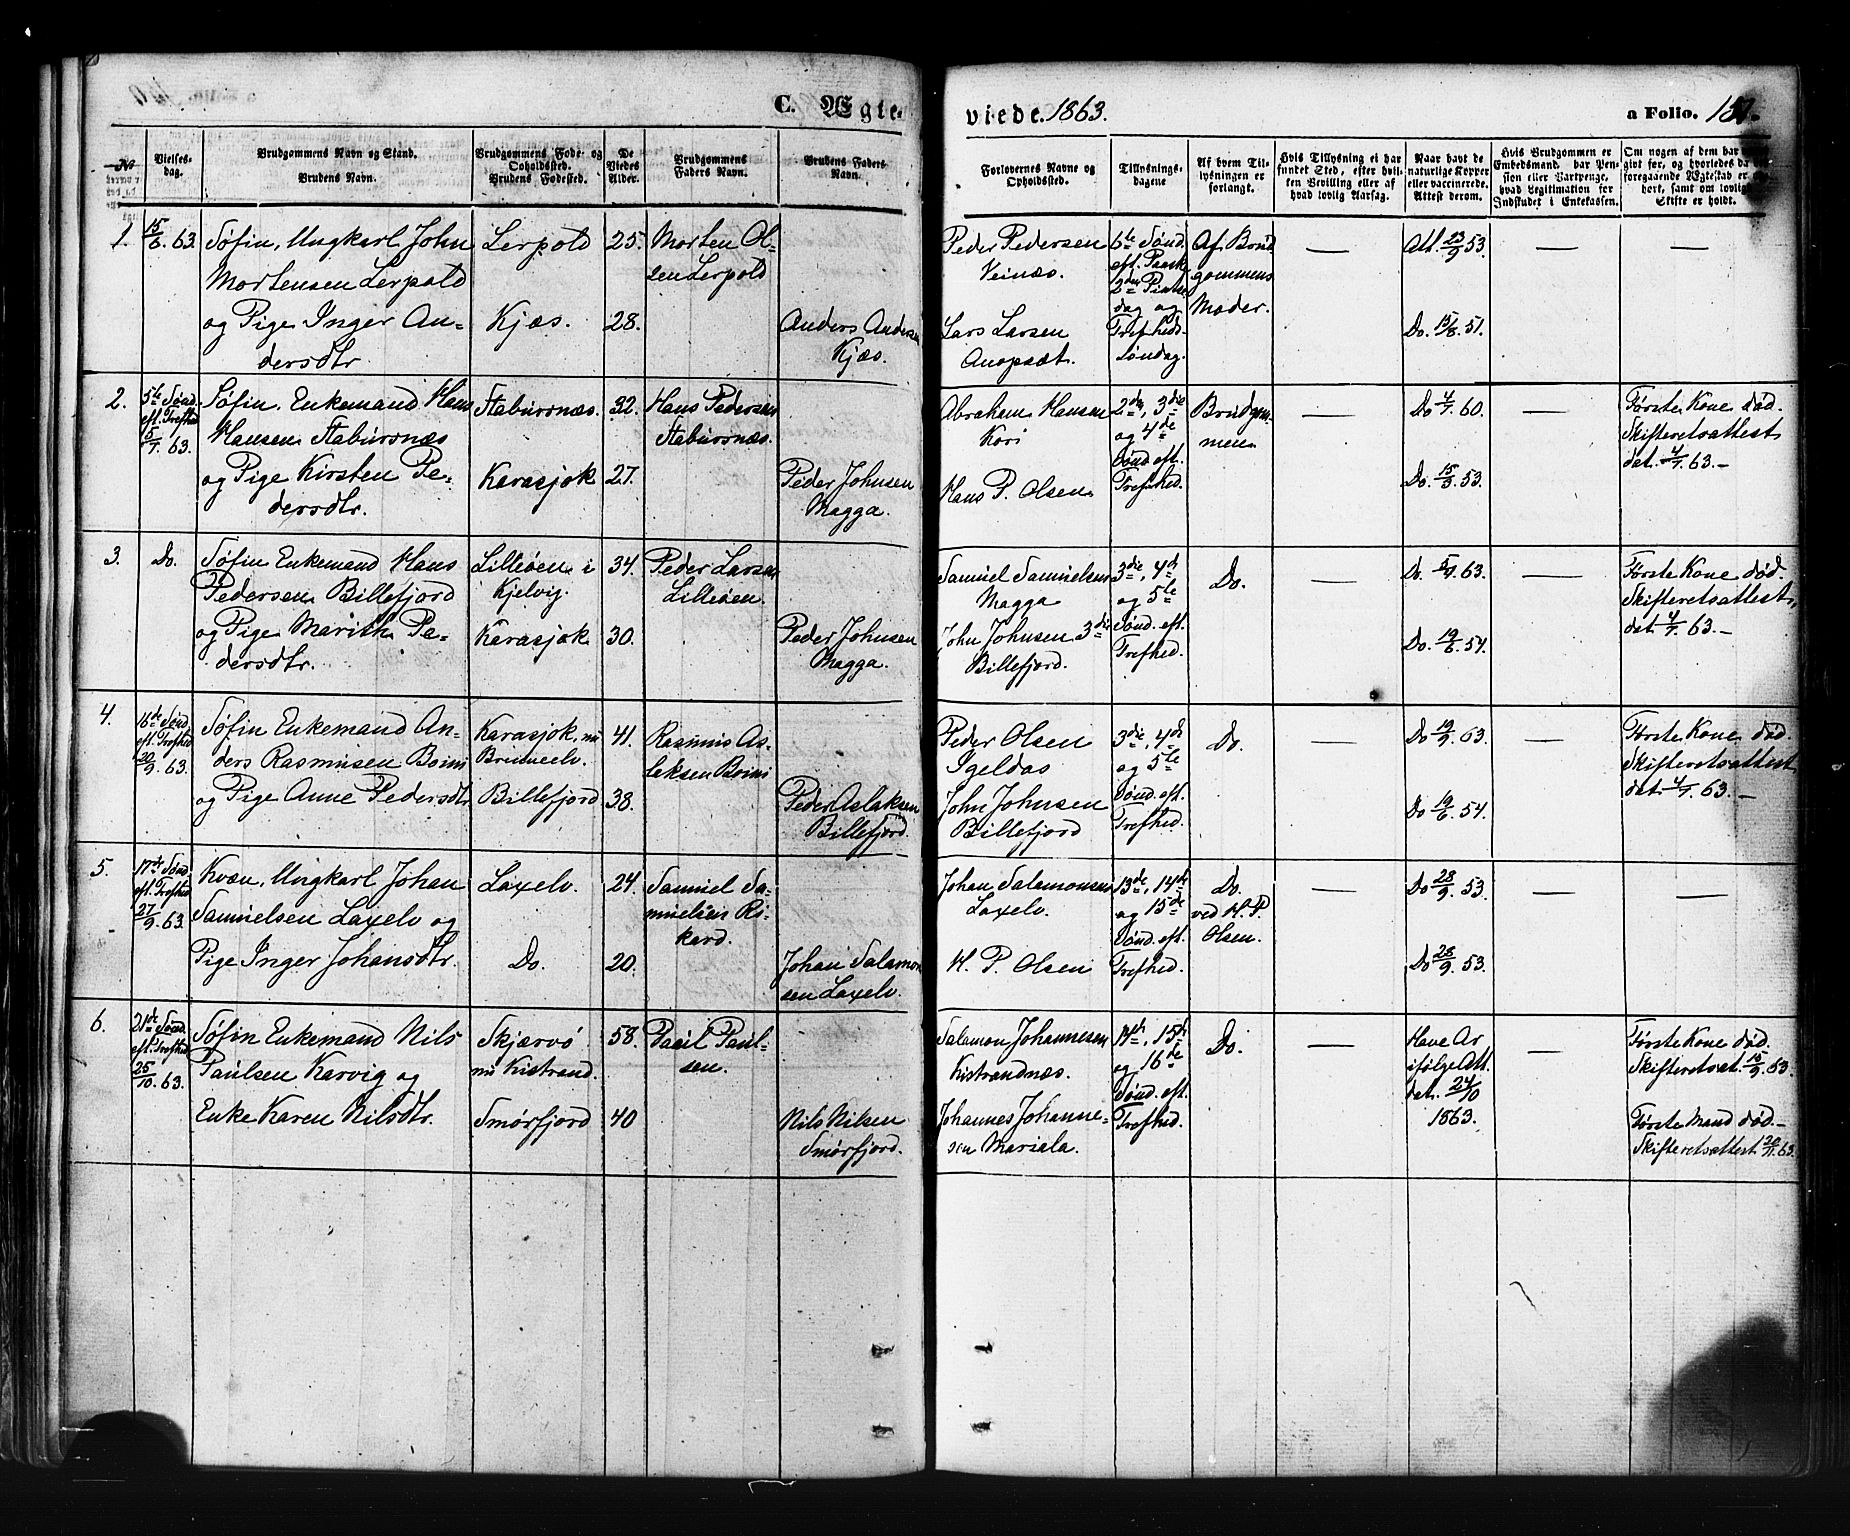 C. Ægte-
viede. 1863.
a Folio.
No
Vielses-
dag.
Brudgommens Navn og Stand.
Brudens Navn.
Brudgommens Føde- og
Opholdssted.
Brudens Fødested.
De
Viedes
Alder.
Brudgommens
Faders Navn.
Brudens Faders
Navn.
Forlovernes Navne og
Opholdssted.
Tillysnings-
dagene
Af hvem Til-
lysningen er
forlangt.
Hvis Tillysning ei har
fundet Sted, efter hvil-
ken Bevilling eller af
hvad lovlig Aarsag.
Naar havt de
naturlige Kopper
eller vaccinerede.
Attest derom.
Hvis Brudgommen er
Embedsmand, har Pen-
sion eller Vartpenge,
hvad Legitimation for
Indskudet i Enkekassen.
Om nogen af dem har
givt før, og hvorledes da
foregaaende Ægteskab er
hørt, samt om lovligt
Skifte er holdt.
1.
15/6. 63.
Søfin, Ungkarl John
Mortensen Lerpold
og Pige Inger An-
dersdtr.
Lerpold
Kjæs.
25.
28.
Morten Ol-
sen Lerpold
Anders Anders
Kjæs.
Peder Pedersen
Veinæs.
Lars Larsen
Anopsæt.
6te Sønd.
eft. Paask
2den Pintse
dag og
Trefheds-
søndag.
Af Brud
gommens
Moder.
—
Att. 23/9 53.
Do. 15/8. 51.
—
—
2.
5te Sønd.
eft. Trefhed
5/7 63.
Søfin, Enkemand Hans
Hansen Stabursnæs
og Pige Kirsten Pe-
dersdtr.
Stabursnæs.
Karasjok
32.
27.
Hans Pedersen
Stabursnæs.
Peder Johnsen
Magga.
Abraham Hansen
Kori
Hans P. Olsen
2den, 3die
og 4de
Sønd. eft.
Trefhed.
Brudgom
men.
—
Do 4/7. 60.
Do. 15/3. 53.
—
Første Kone død.
Skifteretsattest
dat. 4/7. 63.—
3.
Do.
Søfin Enkemand Hans
Pedersen Billefjord
og Pige Marith Pe-
dersdtr.
Lilleøen i
Kjelvig.
Karasjok
34.
30.
Peder Larsen
Lilleøen.
Peder Johnsen
Magga.
Samuel Samuelsen
Magga
John Johnsen
Billefjord.
3die, 4de
og 5te
3die Sønd. eft.
Trefhed.
Do.
—
Do. 5/7. 63.
Do. 19/6. 54.
—
Første Kone død.
Skifteretsattest,
dat. 4/7. 63.—
4.
16de Sønd.
eft. Trefhed
20/9. 63.
Søfin Enkemand An-
ders Rasmusen Boini
og Pige Anne Pedersdtr
Karasjok, nu
Brenneelv.
Billefjord
41.
38.
Rasmus As-
laksen Boini
Peder Aslaksen
Billefjord.
Peder Olsen
Igeldas
John Johnsen
Billefjord
3die, 4de
og 5te
Sønd. eft.
Trefhed.
Do.
—
Do 19/9. 63.
Do 19/6. 54.
—
Første Kone død.
Skifteretsattest
dat. 4/7. 63.—
5.
17de Sønd.
eft. Trefhed
27/9. 63.
Kvæn, Ungkarl Johan
Samuelsen Laxelv og
Pige Inger Johansdtr.
Laxelv.
Do.
24.
20.
Samuel Sa-
muelsen Ri-
kard.
Johan Salamon-
sen Laxelv.
Johan Salamonsen
Laxelv.
H. P. Olsen
13de, 14de
og 15de
Sønd. eft.
Trefhed.
Do.
ved H. P.
Olsen.
—
Do 28/9. 53.
Do 28/9. 53.
—
6.
21de Sønd.
eft. Trefhed
25/10. 63.
Søfin Enkemand Nils
Paulsen Karvig og
Enke Karen Nilsdtr.
Skjærvø
nu Kistrand.
Smørfjord
58.
40
Paul Paul-
sen.
Nils Nilsen
Smørfjord.
Salamon Johannesen
Kistrandnæs.
Johannes Johanne-
sen Mariala.
14de, 15de
og 16de
Sønd. eft.
Trefhed.
Do.
—
Have Ar
ifølge Att.
dat. 24/10
1863.
—
Første Kone død.
Skifteretsat. 15/9. 53.
Første Mand død.—
Skifteretsattest 20/11. 63.